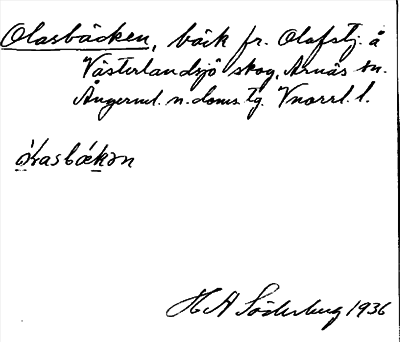 Olasbäcken, bäck fr. Olofstj. å
Västerlandsjö skog, Arnäs sn.
Ångerml. n. doms. tg. Vnorrl. l.
H A Söderberg 1936